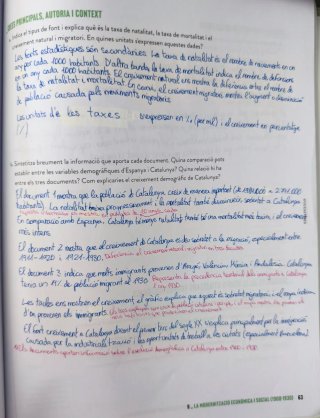 IDEES PRINCIPALS, AUTORIA I CONTEXT
Indica el tipus de font i explica què és la taxa de natalitat, la taxa de mortalitat i el
creixement natural i migratori. En quines unitats s'expressen aquestes dades?
Les fonts estadístiques són secundàries. La taxa de natalitat és el nombre de naixements en un
any per cada 1000 habitants. D'altra banda, la taxa de mortalitat indica el nombre de defuncions
en un any cada 1000 habitants. El creixement natural ens mostra la diferència entre el nombre de
la taxa de natalitat i mortalitat. En canvi, el creixement migratori mostra l'augment o disminució
de població causada pels moviments migratoris.
Les unitats de les taxes s'expressen en ‰ (per mil) i el creixement en percentatge
(%)
Sintetitza breument la informació que aporta cada document. Quina comparació pots
establir entre les variables demogràfiques d'Espanya i Catalunya? Quina relació hi ha
entre els tres documents? Com explicaries el creixement demogràfic de Catalunya?
El document 1 mostra que la població de Catalunya creix de manera
habitants). La natalitat baixa progressivament i la mortalitat també disminueix, sobretot a Catalunya.
En comparació amb Espanya, Catalunya té una mortalitat més baixa, i el creixement
més intens.
El document 2 mostra que el creixement de Catalunya es deu sobretot a la migració, especialment entre
1911-1920 i 1921-1930.
El document 3 indica que molts immigrants provenien d'Aragó, València, Múrcia i Andalusia. Catalunya
tenia un 19% de població immigrada el 1930. Representa la procedència territorial dels immigrants a Catalunya
l'any 1930.
Les taules ens mostren el creixement, el gràfic explica que aquest és sobretot migratori, i el mapa indica
d'on provenen els immigrants.
El fort creixement a Catalunya durant el primer terç del segle XX s'explica principalment per la immigració
causada per la industrialització i les oportunitats de treball a les ciutats (especialment Barcelona).
Els documents aporten informació sobre l'evolució demogràfica a Catalunya entre 1900 i 1930.
5. LA MODERNITZACIÓ ECONÒMICA I SOCIAL (1900-1930) 63